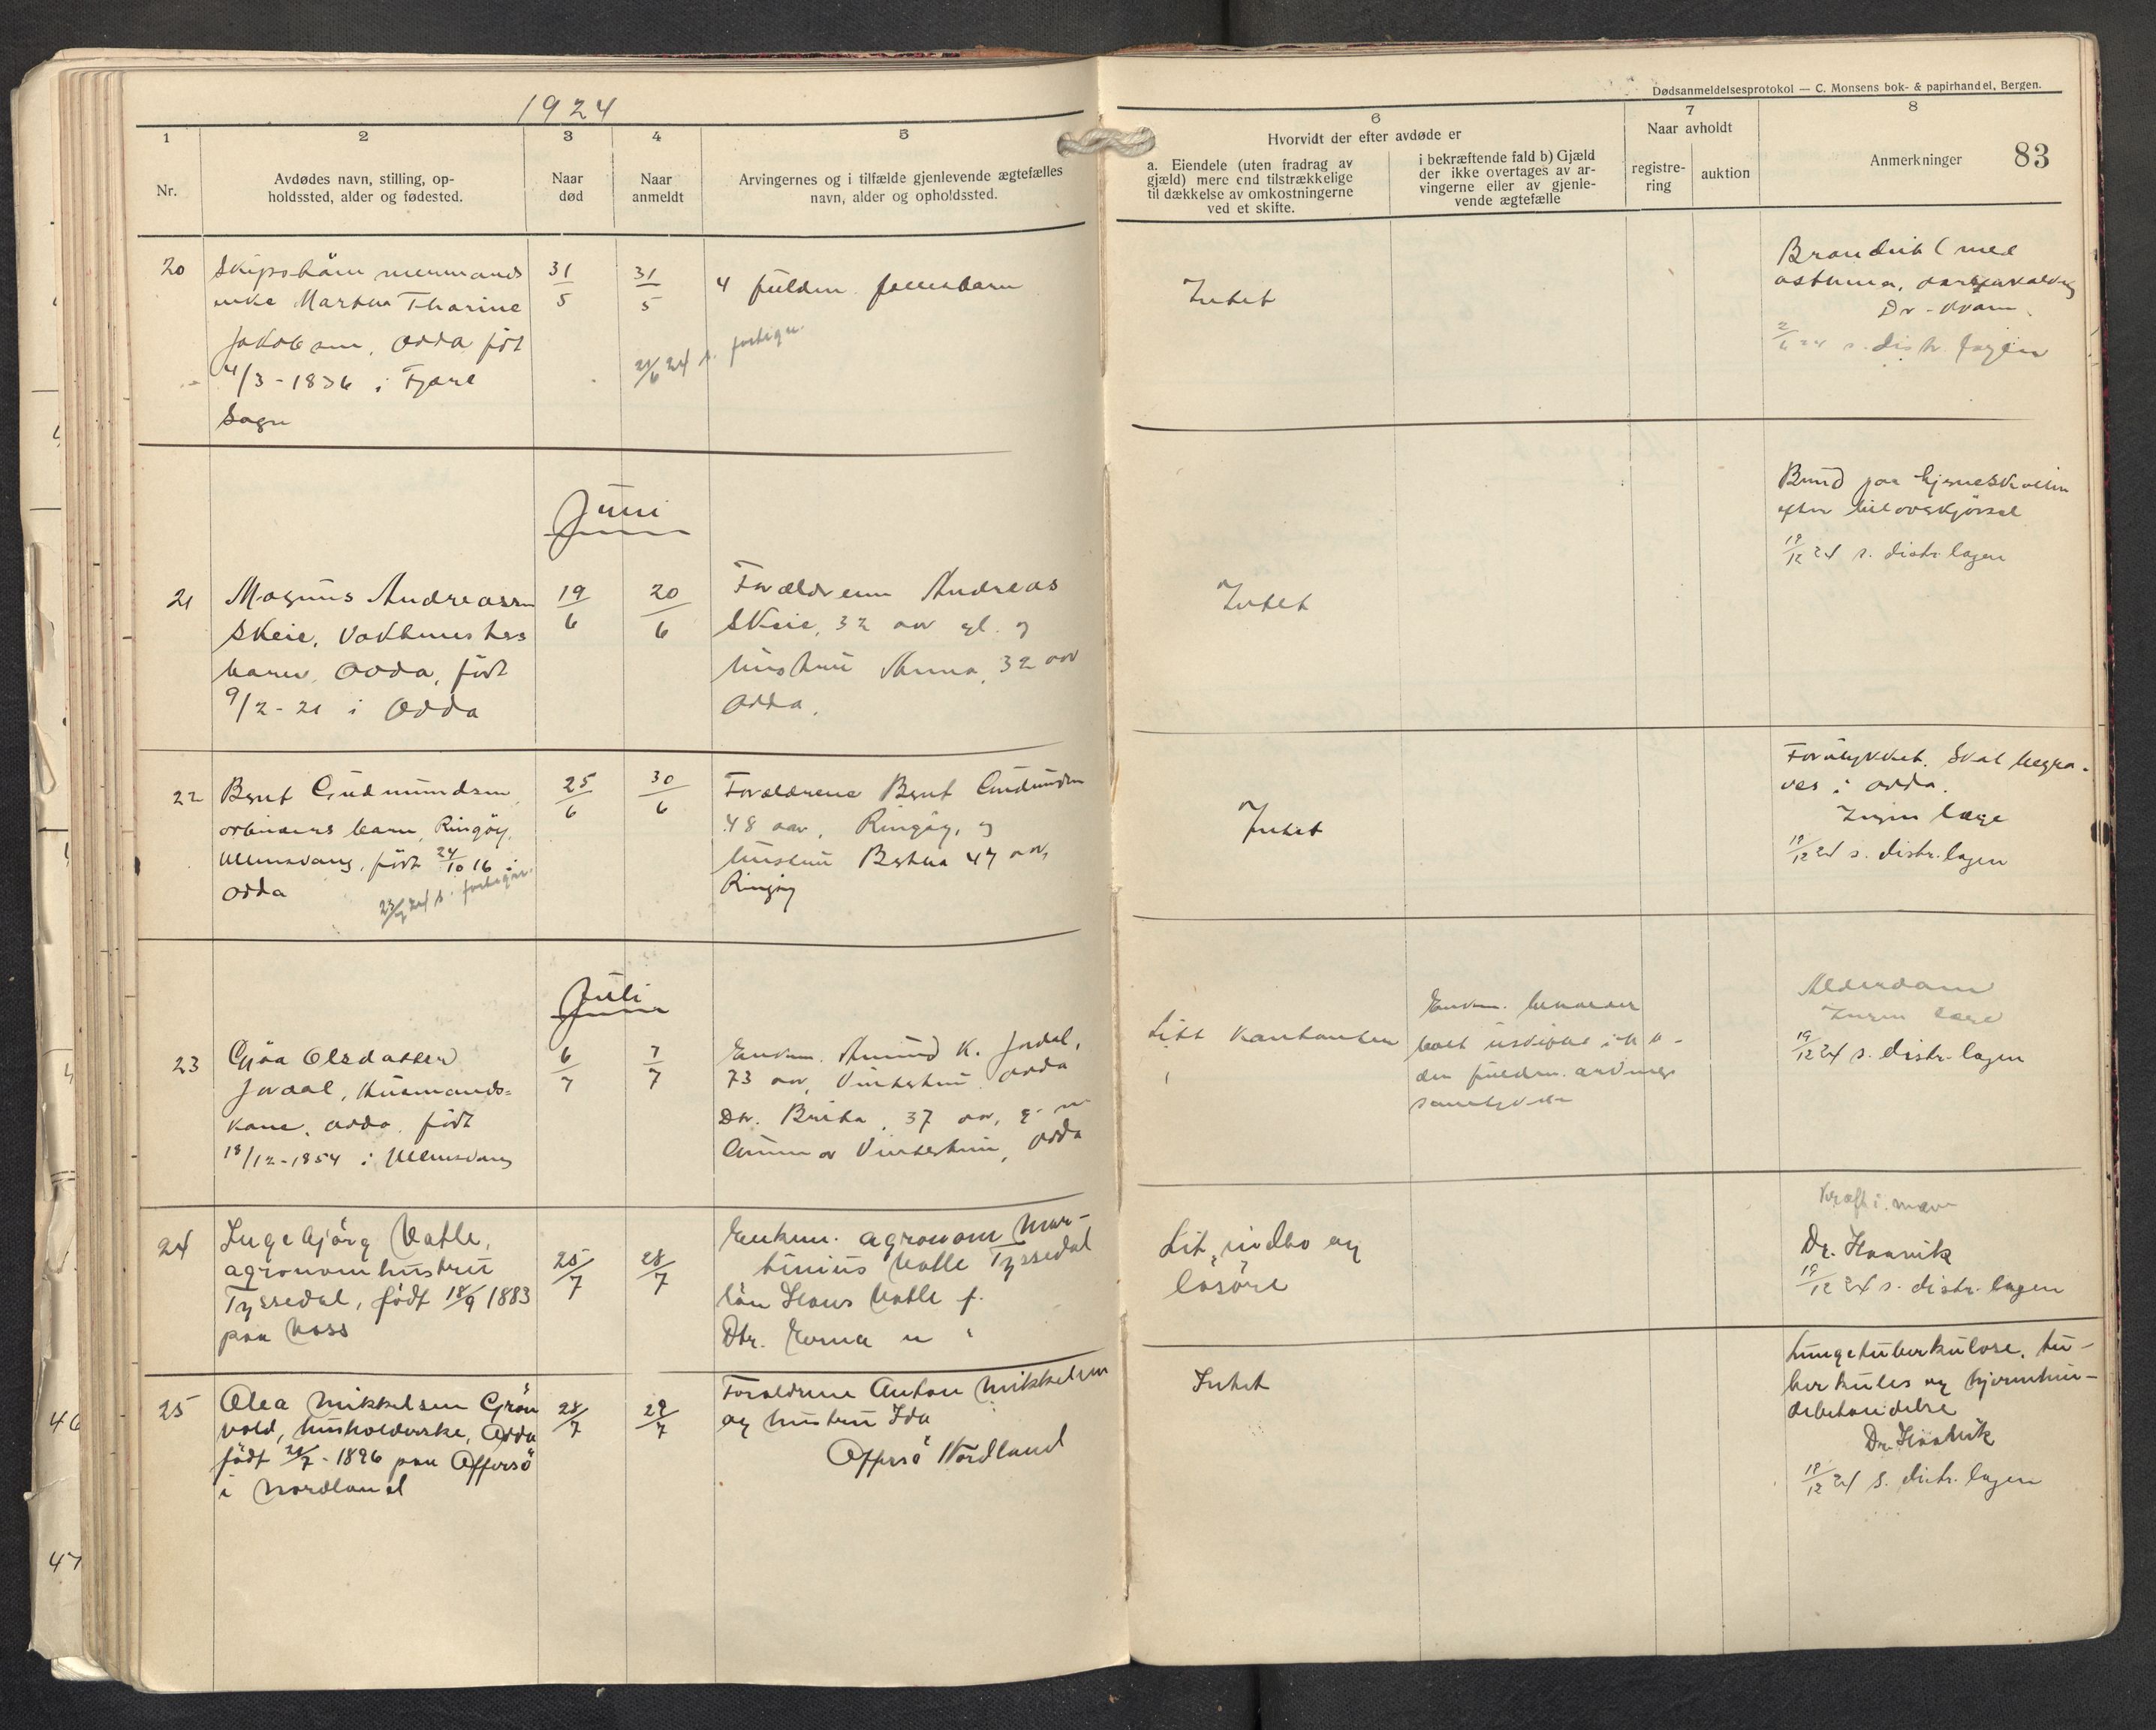 1924
Dødsanmeldelsesprotokol — C. Monsens bok- & papirhandel, Bergen.
83
1 2 3 4 5 6 7 8
Nr.
Avdødes navn, stilling, op-
holdssted, alder og fødested.
Naar
død
Naar
anmeldt
Arvingernes og i tilfælde gjenlevende ægtefælles
navn, alder og opholdssted.
Hvorvidt der efter avdøde er
a. Eiendele (uten fradrag av
gjæld) mere end tilstrækkelige
til dækkelse av omkostningerne
ved et skifte.
i bekræftende fald b) Gjæld
der ikke overtages av ar-
vingerne eller av gjenle-
vende ægtefælle
Naar avholdt
registre-
ring
auktion
Anmerkninger
20
enke Martha Tharine
Jakobsen, Odda født
4/3 - 1836 i Fjærl
Sogn
31/5
31/5
4 fuldm. fællesbarn
21/6 24 s. fortegn.
Intet
Bronchit (med
asthma,
Dr. Kvam.
2/6 24 s. distr. lægen
Juni
21
Magnus Andreassen
Skeie, Vaktmesters
barn, Odda, født
9/2 - 21 i Odda
19/6
20/6
Forældrene Andreas
Skeie, 32 aar gl. og
hustru Anna, 32 aar
Odda.
Intet
Brud paa hjerneskallen
efter biloverkjørsel
19/12 24 s. distr. lægen
22
Bernt Gudmundsen
arbeiders barn, Ringøy,
Ullensvang, født 24/10 16 i
Odda
s. fortegn.
25/6
30/6
Forældrene Bernt Gudmundsen
48 aar, Ringøy, og
hustru Bertha 47 aar,
Ringøy
Intet
Forulykket. Skal begra-
ves i Odda.
Ingen læge
19/12 24 s. distr. lægen
Juli
23
Gjøa Olsdatter
Jordal, Husmands-
kone, Odda, født
18/12 - 1854 i Ullensvang
6/7
7/7
Enkem. Amund K. Jordal,
73 aar, Vintertun, Odda
Dtr. Brita, 37 aar, g. m.
Gunnar Vintertun, Odda
Litt kontanter
Enkem. beholder
boet uskiftet i h.t.
den fuldm. arvings
samtykke
Alderdom
Ingen læge
19/12 24 s. distr. lægen
24
Ingebjørg Vatle,
agronomhustru
Tyssedal, født 18/9 1883
paa Voss
25/7
28/7
Enkem. agronom Mar-
tinius Vatle Tyssedal
Søn Hans Vatle
Dtr. Erna "
Lit indbo og
løsøre
Kræft i mave
Dr. Haavik
19/12 24 s. distr. lægen
25
Olea Mikkelsen Grøn
vold, husholderske, Odda
født 21/7 - 1896 paa Offersø
i Nordland
28/7
29/7
Forældrene Anton Mikkelsen
og hustru Ida
Offersø Nordland
Intet
Lungetuberkulose, tu-
berkuløs og hjernehin-
debetændelse
Dr. Haavik
19/12 24 s. distr. lægen
46
47